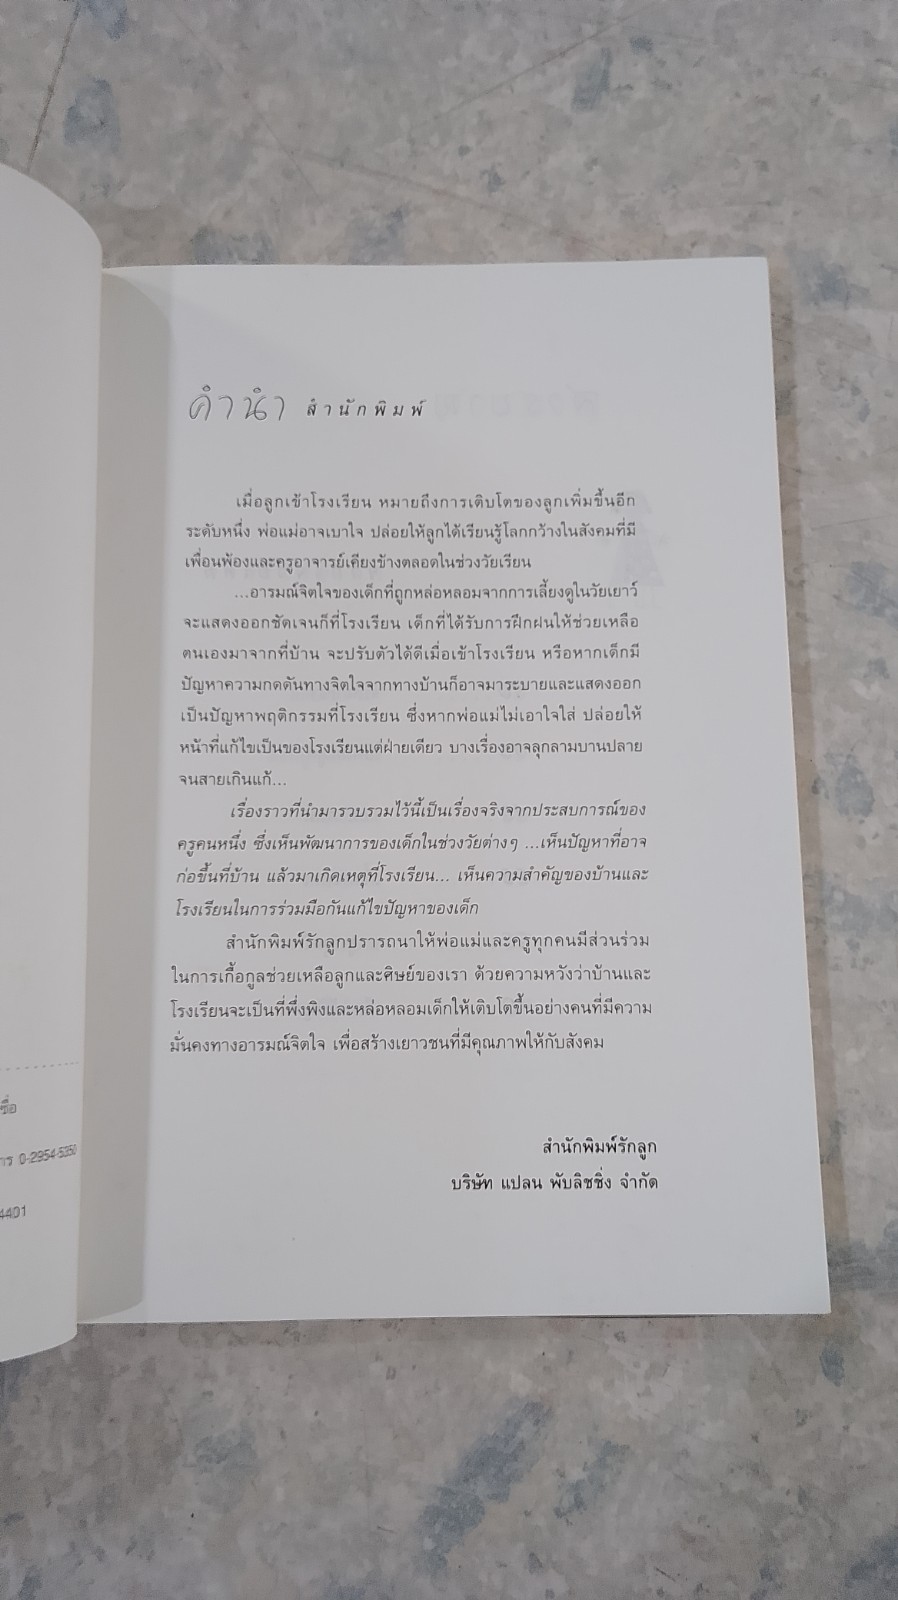 คำนำ สำนักพิมพ์
เมื่อลูกเข้าโรงเรียน หมายถึงการเติบโตของลูกเพิ่มขึ้นอีก
ระดับหนึ่ง พ่อแม่อาจเบาใจ ปล่อยให้ลูกได้เรียนรู้โลกกว้างในสังคมที่มี
เพื่อนพ้องและครูอาจารย์เคียงข้างตลอดในช่วงวัยเรียน
...อารมณ์จิตใจของเด็กที่ถูกหล่อหลอมจากการเลี้ยงดูในวัยเยาว์
จะแสดงออกชัดเจนก็ที่โรงเรียน เด็กที่ได้รับการฝึกฝนให้ช่วยเหลือ
ตนเองมาจากที่บ้าน จะปรับตัวได้ดีเมื่อเข้าโรงเรียน หรือหากเด็กมี
ปัญหาความกดดันทางจิตใจจากทางบ้านก็อาจมาระบายและแสดงออก
เป็นปัญหาพฤติกรรมที่โรงเรียน ซึ่งหากพ่อแม่ไม่เอาใจใส่ ปล่อยให้
หน้าที่แก้ไขเป็นของโรงเรียนแต่ฝ่ายเดียว บางเรื่องอาจลุกลามบานปลาย
จนสายเกินแก้...
เรื่องราวที่นำมารวบรวมไว้นี้เป็นเรื่องจริงจากประสบการณ์ของ
ครูคนหนึ่ง ซึ่งเห็นพัฒนาการของเด็กในช่วงวัยต่างๆ ...เห็นปัญหาที่อาจ
ก่อขึ้นที่บ้าน แล้วมาเกิดเหตุที่โรงเรียน... เห็นความสำคัญของบ้านและ
โรงเรียนในการร่วมมือกันแก้ไขปัญหาของเด็ก
สำนักพิมพ์รักลูกปรารถนาให้พ่อแม่และครูทุกคนมีส่วนร่วม
ในการเกื้อกูลช่วยเหลือลูกและศิษย์ของเรา ด้วยความหวังว่าบ้านและ
โรงเรียนจะเป็นที่พึ่งพิงและหล่อหลอมเด็กให้เติบโตขึ้นอย่างคนที่มีความ
มั่นคงทางอารมณ์จิตใจ เพื่อสร้างเยาวชนที่มีคุณภาพให้กับสังคม
สำนักพิมพ์รักลูก
บริษัท แปลน พับลิชชิ่ง จำกัด
ชื่อ
าร 0-2954-5350
4401